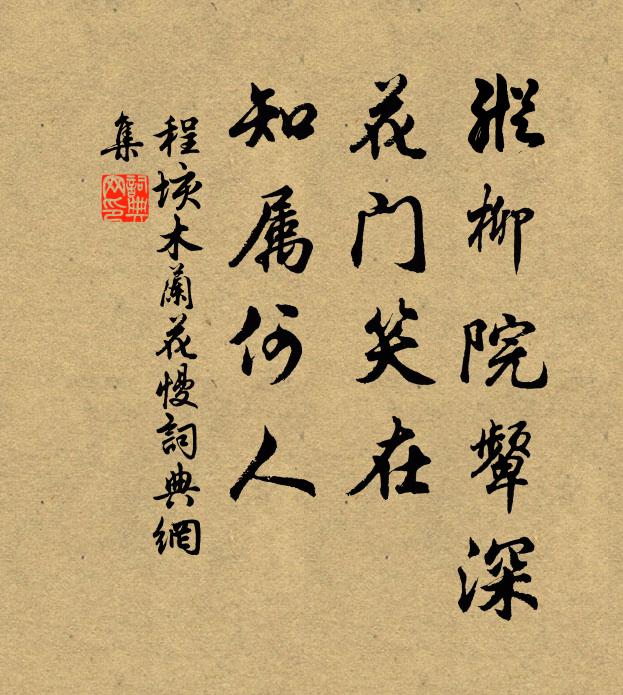 縱柳院顰深
花門笑在
知属何人
程垓木蘭花慢詞典網
集
詞典
网印